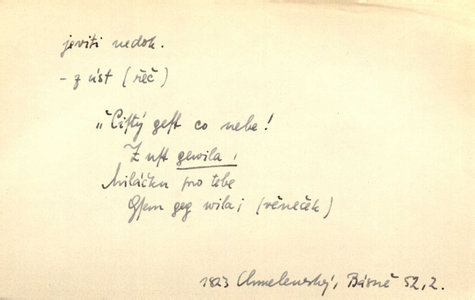 jeviti nedok.
- z úst (řeč)
"Čistý gest co nebe!
Z ust gewila,
Miláčku pro tebe
Gsem geg wila; (věneček)
1823 Chmelenský, Básně 52,2.